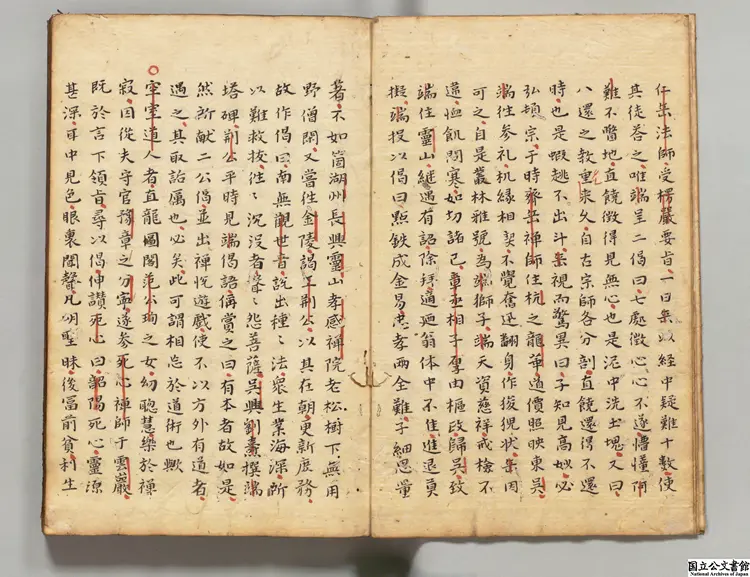 仟岳法師受楞嚴要旨一日岳以經中疑難十數使
其徒荅之唯端呈二偈曰七處徵心心不遂懵懂阿
難不瞥地直饒徵得見無心也是泥中洗土塊又曰
八還之教垂來久自古宗師各分剖直饒還得不還
時也是蝦跳不出斗岳視而驚異曰子知見高妙必
弘頓宗于時齊岳禅師住杭之龍華道價照映東吳
端往参礼机縁相契不覺奮迅翻身作狻猊状岳因
可之自是叢林雅號為端獅子端天資慈祥戒檢不
違恤飢問寒如切諸己章丞相子厚由樞政歸吳致
端住靈山継遇有詔除拜適迺翁体中不佳進退莫
擬端投以偈曰點鉄成金易忠孝兩全難子細思量
著不如箇湖州長興靈山孝感禅院老松樹下無用
野僧閑又嘗往金陵謁王荆公以其在朝更新庶務
故作偈曰南無觀世音說出種〻法衆生業海深所
以難救拔往〻沉没者聲〻怨菩薩吳興劉燾撰端
塔碑荆公平時見端偈語稱賞之曰有本者故如是
然所献二公偈並出禅悅遊戲使不以方外有道者
遇之其取詬厲也必矣此可謂相忘於道術也歟
空室道人者直龍圖閣范公珣之女幼聰慧樂於禅
寂因從夫守官豫章之分寧遂参死心禅師于雲巖
既於言下領旨尋以偈伸讃死心曰韶陽死心靈源
甚深耳中見色眼裏聞聲凡明聖昧後冨前貧利生
国立公文書館
National Archives of Japan